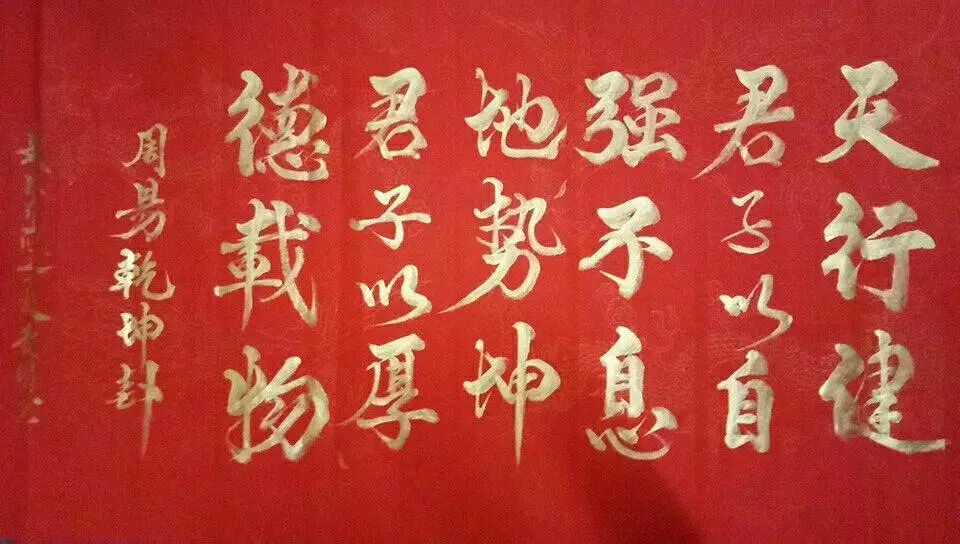 天行健
君子以自
强不息
地势坤
君子以厚
德載物
周易乾坤卦